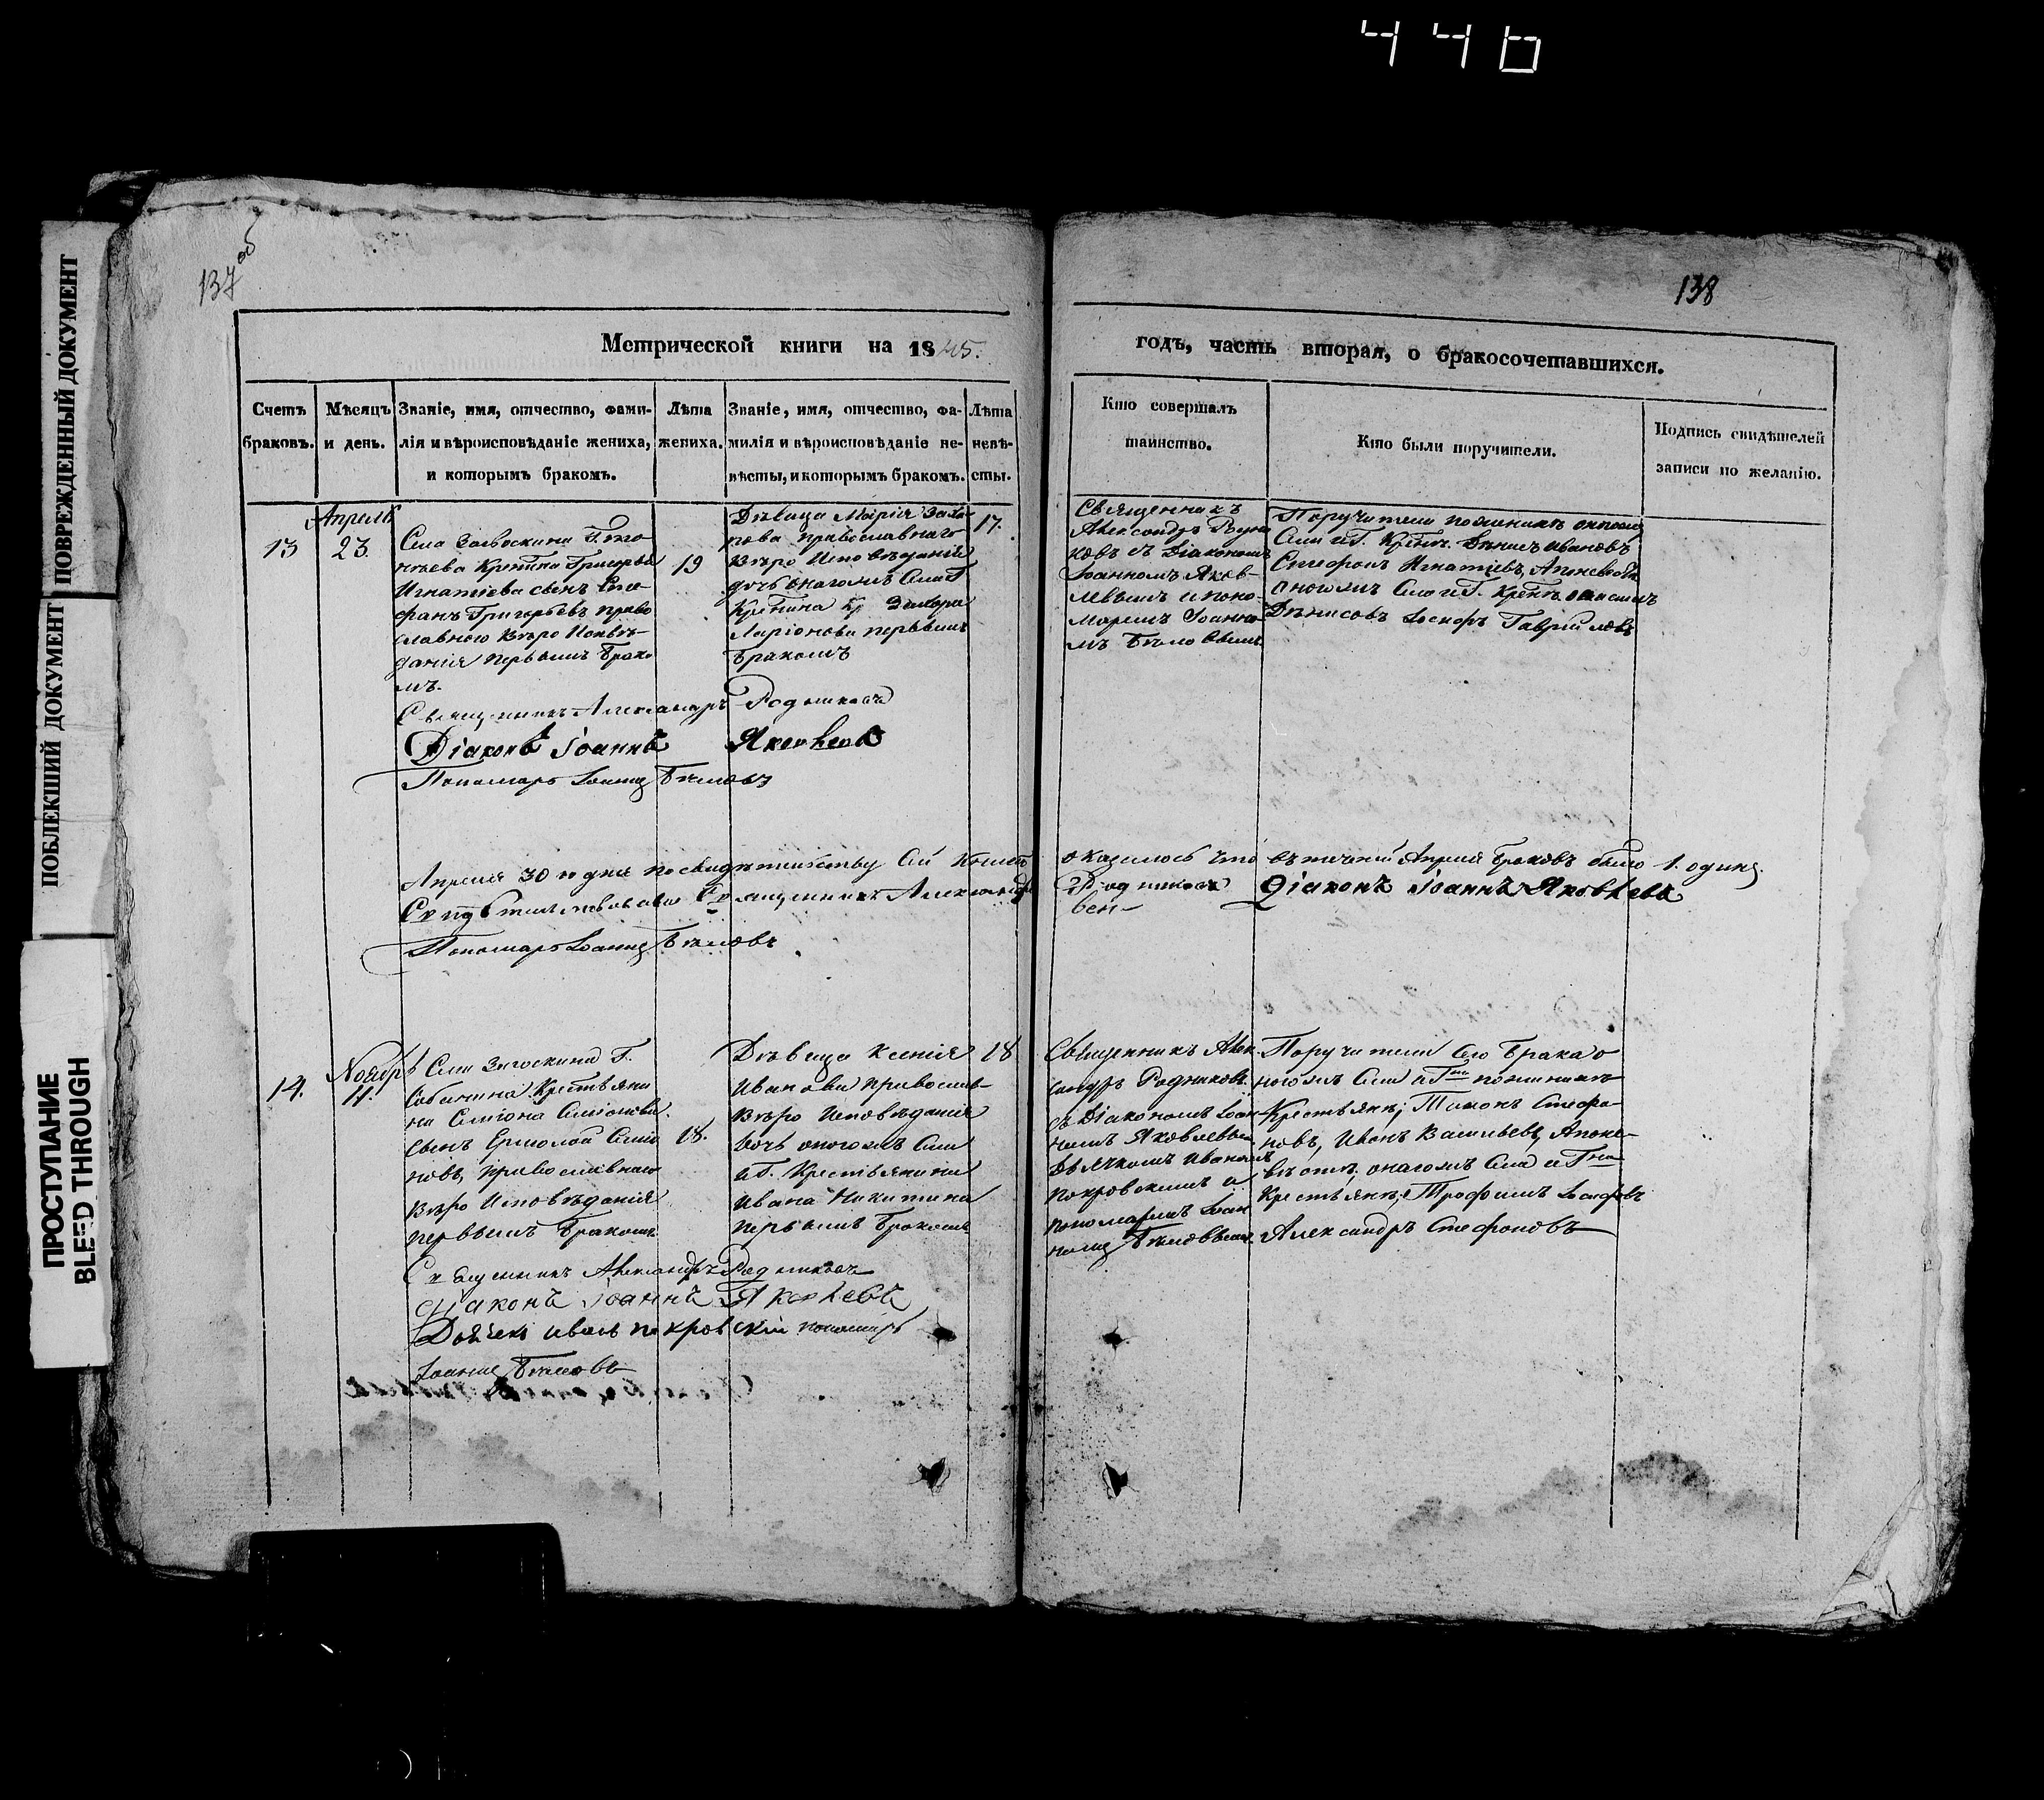 440
137 об
138
ПОВРЕЖДЕННЫЙ ДОКУМЕНТ
ПОБЛЕКШИЙ ДОКУМЕНТ
ПРОСТУПАНИЕ
BLEED THROUGH
Метрической книги на 1845.
годъ, часть вторая, о бракосочетавшихся.
Счетъ браковъ.
Мѣсяцъ и день.
Званіе, имя, отчество, фами-
лія и вѣроисповѣданіе жениха,
и которымъ бракомъ.
Лѣта жениха.
Званіе, имя, отчество, фа-
милія и вѣроисповѣданіе не-
вѣсты, и которымъ бракомъ.
Лѣта невѣ-
сты.
Кто совершалъ
таинство.
Кто были поручители.
Подпись свидѣтелей
записи по желанію.
13
Апреля
23.
Села
Григорья
Игнатіева сынъ Сте-
фанъ Григорьевъ право
славнаго Вѣро Исповѣ-
данія первымъ Брако
мъ.
19
Дѣвица Марія Заха-
рова православнаго
Вѣро Исповѣданія
дочь онагожъ Села Г
Захара
Ларіонова первымъ
бракомъ
17.
Священникъ
Александръ Родни
ковъ съ Діакономъ
Іоанномъ Яков-
левымъ и поно-
маремъ Іоанно
мъ Бѣловымъ
Поручители по женихѣ
Села и Г. Денисъ Ивановъ
Стефанъ Игнатіевъ, А по невѣстѣ
оногожъ Села и Г.
Денисовъ Іосифъ Гавриловъ
Священникъ Александръ Родниковъ
Діаконъ Іоаннъ Яковлевъ
Пономарь Іоаннъ Бѣловъ
Апреля 30 го дня по свидѣтельству Сей Книги
оказалось что въ теченіи Апреля браковъ было 1. одинъ.
Священникъ Александръ
Родниковъ Діаконъ Іоаннъ Яковлевъ
Пономарь Іоаннъ Бѣловъ
14.
Ноября
11.
Села Загоскина Г.
Крестьяни
на Симіона Симіонова
сынъ Ермолай Симіо
новъ, православнаго
Вѣро Исповѣданія
первымъ Бракомъ
18.
Дѣвица Ксенія
Иванова православ-
Вѣро Исповѣданія
дочь оногожъ Села
и Г. Крестьянина
Ивана Никитина
первымъ Бракомъ
18
Священникъ Алек
сандръ Родниковъ
съ Діакономъ Іоан-
номъ Яковлевым
Дьячкомъ Иваномъ
покровскимъ и
пономаремъ Іоан
номъ Бѣловымъ
Поручители Сего Брака о
ногожъ Села и Гна по женихѣ
Крестьяне; Тимонъ Стефа-
новъ, Иванъ Васильевъ, А по не-
вѣстѣ, онагожъ Села и Гна
Крестьяне; Трофимъ Іосифовъ
Александръ Стефановъ
Священникъ Александръ Родниковъ
Діаконъ Іоаннъ Яковлевъ
Дьячекъ Иванъ покровскій пономарь
Іоаннъ Бѣловъ